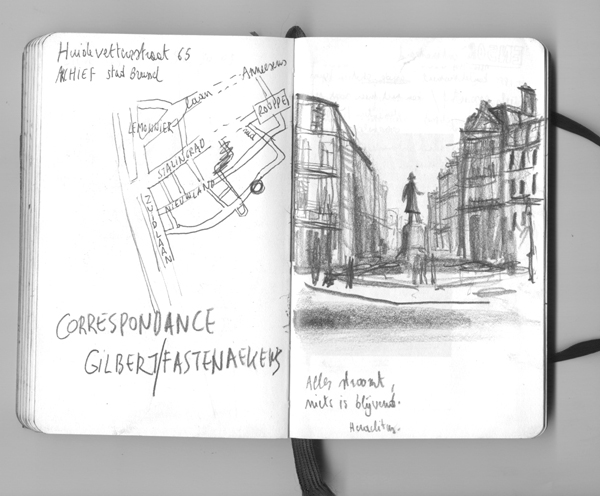 Huidevettersstraat 65
ACHIEF stad Brussel
Anneessens
laan
ROUPPE
LEMONNIER
STALINGRAD
NIEUWLAND
ZUIDLAAN
CORRESPONDANCE
GILBERT/FASTENAEKENS
Alles stroomt,
niets is blijvend.
Heraclitus.